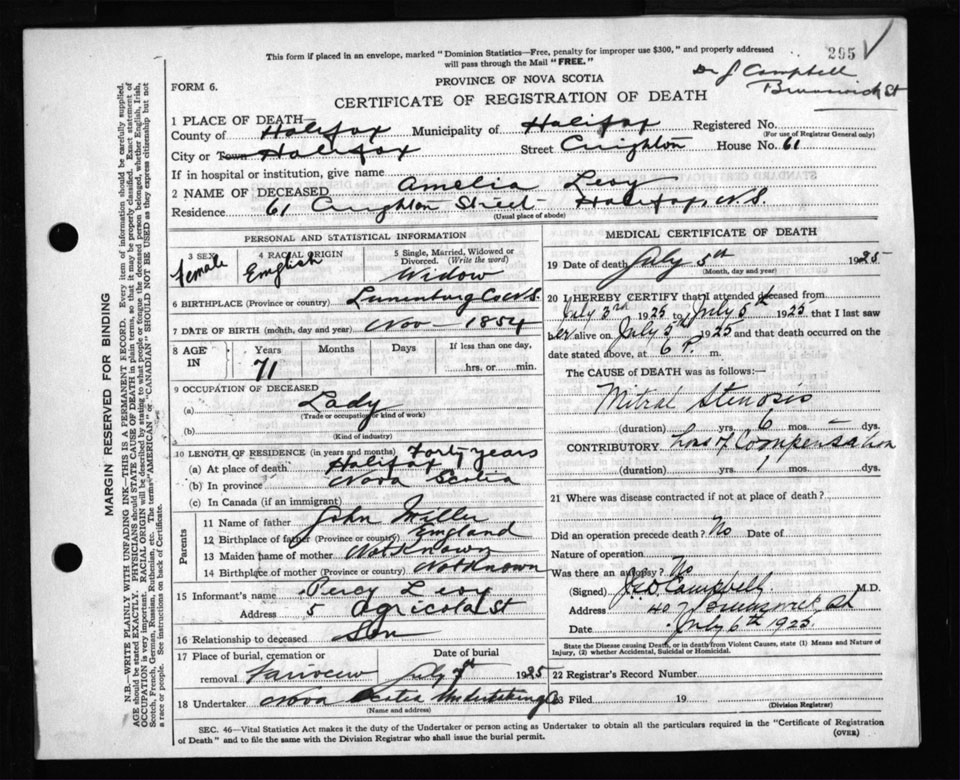 This form if placed in an envelope, marked "Dominion Statistics—Free, penalty for improper use $300," and properly addressed
will pass through the Mail "FREE."
295
Dr J Campbell
Brunswick St
FORM 6.
PROVINCE OF NOVA SCOTIA
CERTIFICATE OF REGISTRATION OF DEATH
1 PLACE OF DEATH
County of Halifax Municipality of Halifax Registered No.
(For use of Registrar General only)
City or Town Halifax Street Creighton House No. 61
If in hospital or institution, give name
2 NAME OF DECEASED Amelia Levy
Residence 61 Creighton Street Halifax, N.S.
(Usual place of abode)
PERSONAL AND STATISTICAL INFORMATION
3 SEX 4 RACIAL ORIGIN 5 Single, Married, Widowed or
Divorced. (Write the word)
female English Widow
6 BIRTHPLACE (Province or country) Lunenburg Co N.S.
7 DATE OF BIRTH (month, day and year) Nov — 1854
8 AGE IN Years Months Days If less than one day,
71 hrs. or min.
9 OCCUPATION OF DECEASED
(a) Lady
(Trade or occupation or kind of work)
(b)
(Kind of industry)
10 LENGTH OF RESIDENCE (in years and months) Forty years
(a) At place of death Halifax
(b) In province Nova Scotia
(c) In Canada (if an immigrant)
Parents
11 Name of father John Miller
12 Birthplace of father (Province or country) England
13 Maiden name of mother Not Known
14 Birthplace of mother (Province or country) Not Known
15 Informant's name Percy Levy
Address 5 Agricola St
16 Relationship to deceased Son
17 Place of burial, cremation or Date of burial
removal Fairview July 1925
18 Undertaker Nova Scotia Undertaking Co
(Name and address)
MEDICAL CERTIFICATE OF DEATH
19 Date of death July 5th 1925
(Month, day and year)
20 I HEREBY CERTIFY that I attended deceased from
July 3rd 1925 to July 5th 1925 that I last saw
her alive on July 5th 1925 and that death occurred on the
date stated above, at 6 P. m.
The CAUSE of DEATH was as follows:—
Mitral Stenosis
(duration) yrs. 6 mos. — dys.
CONTRIBUTORY Loss of Compensation
(duration) yrs. 1 mos. dys.
21 Where was disease contracted if not at place of death?
Did an operation precede death? No Date of
Nature of operation
Was there an autopsy? No
(Signed) Campbell M.D.
Address 407 Brunswick St
Date July 6th 1925
State the Disease causing Death, or in death from Violent Causes, state (1) Means and Nature of
Injury, (2) whether Accidental, Suicidal or Homicidal.
22 Registrar's Record Number
23 Filed 19
(Division Registrar)
SEC. 46—Vital Statistics Act makes it the duty of the Undertaker or person acting as Undertaker to obtain all the particulars required in the "Certificate of Registration
of Death" and to file the same with the Division Registrar who shall issue the burial permit.
(OVER)
MARGIN RESERVED FOR BINDING
N.B.—WRITE PLAINLY WITH UNFADING INK—THIS IS A PERMANENT RECORD. Every item of information should be carefully supplied.
AGE should be stated EXACTLY. PHYSICIANS should STATE CAUSE OF DEATH in plain terms, so that it may be properly classified. Exact statement of
OCCUPATION is very important. RACIAL ORIGIN will be described by stating to what people or tongue the deceased person belonged, whether English, Irish,
Scotch, French, German, Russian, Ruthenian, etc. The terms "AMERICAN" or "CANADIAN" SHOULD NOT BE USED as they express citizenship but not
a race or people. See instructions on back of Certificate.